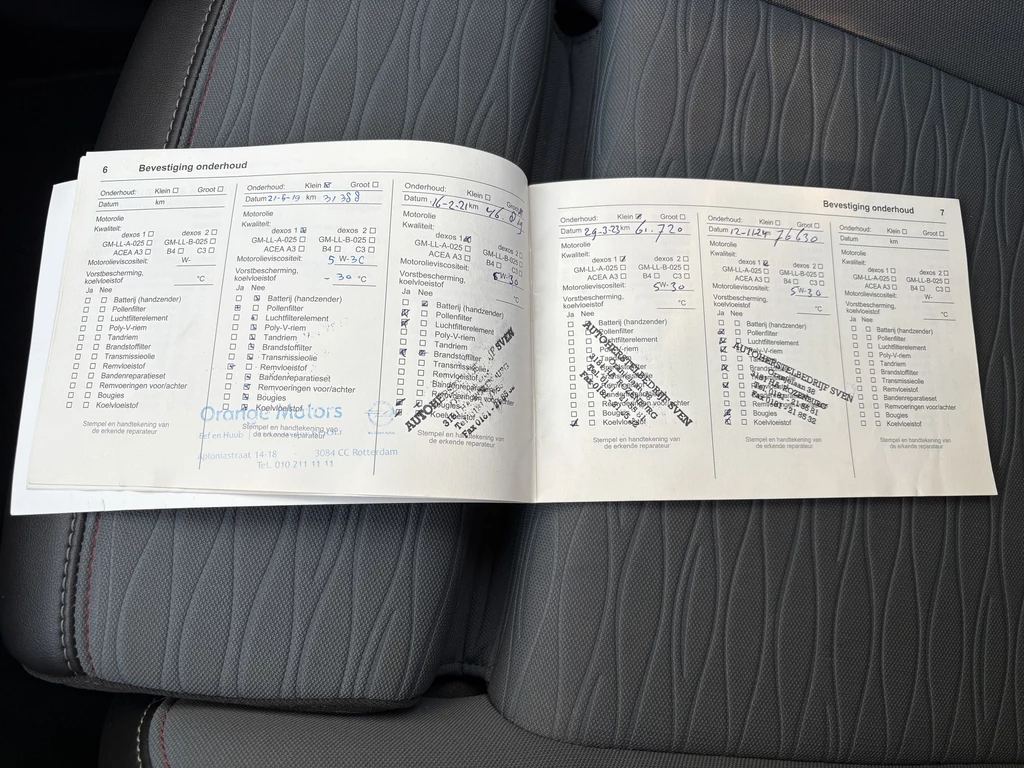 6 Bevestiging onderhoud
Onderhoud: Klein Groot
Datum km
Motorolie
Kwaliteit:
dexos 1 dexos 2
GM-LL-A-025 GM-LL-B-025
ACEA A3 B4 C3
Motorolieviscositeit: W-
Vorstbescherming,
koelvloeistof °C
Ja Nee
Batterij (handzender)
Pollenfilter
Luchtfilterelement
Poly-V-riem
Tandriem
Brandstoffilter
Transmissieolie
Remvloeistof
Bandenreparatieset
Remvoeringen voor/achter
Bougies
Koelvloeistof
Stempel en handtekening van
de erkende reparateur
Onderhoud: Klein Groot
Datum 21-5-19 km 31388
Motorolie
Kwaliteit:
dexos 1 dexos 2
GM-LL-A-025 GM-LL-B-025
ACEA A3 B4 C3
Motorolieviscositeit: 5 W-30
Vorstbescherming,
koelvloeistof - 30 °C
Ja Nee
Batterij (handzender)
Pollenfilter
Luchtfilterelement
Poly-V-riem
Tandriem
Brandstoffilter
Transmissieolie
Remvloeistof
Bandenreparatieset
Remvoeringen voor/achter
Bougies
Koelvloeistof
Stempel en handtekening van
de erkende reparateur
Motors
3084 CC Rotterdam
Tel. 010 211 11 11
Onderhoud: Klein Groot
Datum 16-2-21 km
Motorolie
Kwaliteit:
dexos 1 dexos 2
GM-LL-A-025 GM-LL-B-025
ACEA A3 B4 C3
Motorolieviscositeit: 5W-30
Vorstbescherming,
koelvloeistof °C
Ja Nee
Batterij (handzender)
Pollenfilter
Luchtfilterelement
Poly-V-riem
Tandriem
Brandstoffilter
Transmissieolie
Remvloeistof
Stempel en handtekening van
de erkende reparateur
Bevestiging onderhoud 7
Onderhoud: Klein Groot
Datum 29-3-23 km 61.720
Motorolie
Kwaliteit:
dexos 1 dexos 2
GM-LL-A-025 GM-LL-B-025
ACEA A3 B4 C3
Motorolieviscositeit: 5W-30
Vorstbescherming,
koelvloeistof °C
Ja Nee
Batterij (handzender)
Pollenfilter
Luchtfilterelement
Koelvloeistof
AUTOHERSTELBEDRIJF SVEN
Stempel en handtekening van
de erkende reparateur
Onderhoud: Klein Groot
Datum 12-11-24 km 76630
Motorolie
Kwaliteit:
dexos 1 dexos 2
GM-LL-A-025 GM-LL-B-025
ACEA A3 B4 C3
Motorolieviscositeit: 5W-30
Vorstbescherming,
koelvloeistof °C
Ja Nee
Batterij (handzender)
Pollenfilter
Luchtfilterelement
Poly-V-riem
AUTOHERSTELBEDRIJF SVEN
Bougies
Koelvloeistof
Stempel en handtekening van
de erkende reparateur
Onderhoud: Klein Groot
Datum km
Motorolie
Kwaliteit:
dexos 1 dexos 2
GM-LL-A-025 GM-LL-B-025
ACEA A3 B4 C3
Motorolieviscositeit: W-
Vorstbescherming,
koelvloeistof °C
Ja Nee
Batterij (handzender)
Pollenfilter
Luchtfilterelement
Poly-V-riem
Tandriem
Brandstoffilter
Transmissieolie
Remvloeistof
Bandenreparatieset
Remvoeringen voor/achter
Bougies
Koelvloeistof
Stempel en handtekening van
de erkende reparateur